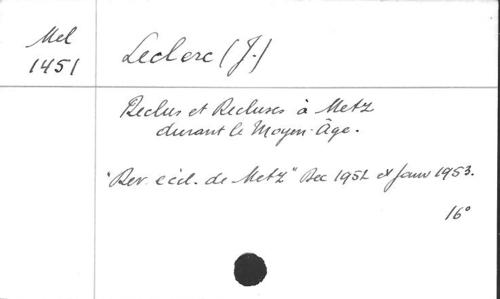 Mel
1451
Leclerc (J.)
Reclus et Recluses à Metz
durant le Moyen-Âge.
"Rev. eccl. de Metz" Dec 1952 et Janv 1953.
16°